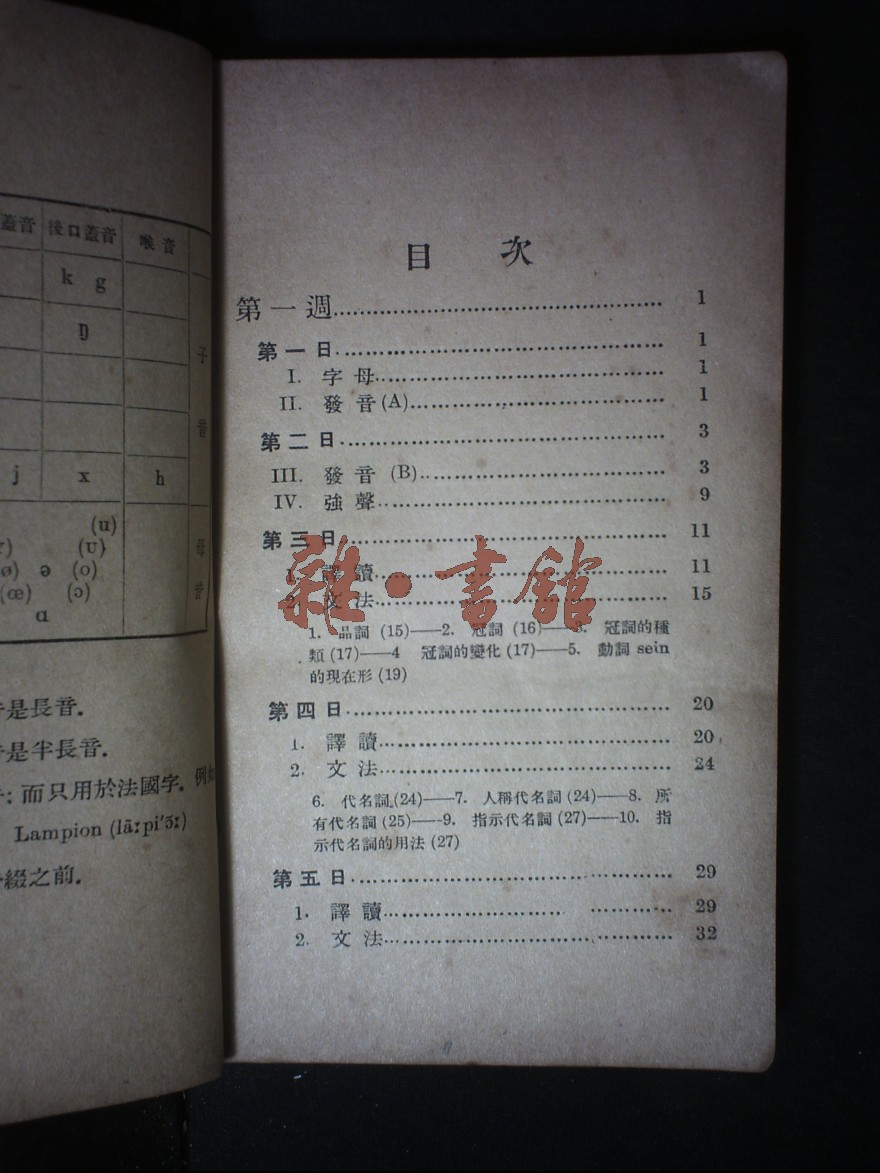 蓋音 後口蓋音 喉音
k g
ŋ
子
音
j x h
(u)
(ʊ)
(ø) ə (o)
(œ) (ɔ)
ɑ
母
音
是長音.
是半長音.
: 而只用於法國字. 例如
Lampion (lãːpi'ɔ̃ː)
綴之前.
目 次
第一週 1
第一日 1
I. 字母 1
II. 發音 (A) 1
第二日 3
III. 發音 (B) 3
IV. 強聲 9
第三日 11
1. 譯讀 11
2. 文法 15
1. 品詞 (15)——2. 冠詞 (16)——3. 冠詞的種
類 (17)——4 冠詞的變化 (17)——5. 動詞 sein
的現在形 (19)
第四日 20
1. 譯讀 20
2. 文法 24
6. 代名詞 (24)——7. 人稱代名詞 (24)——8. 所
有代名詞 (25)——9. 指示代名詞 (27)——10. 指
示代名詞的用法 (27)
第五日 29
1. 譯讀 29
2. 文法 32
雜·書館